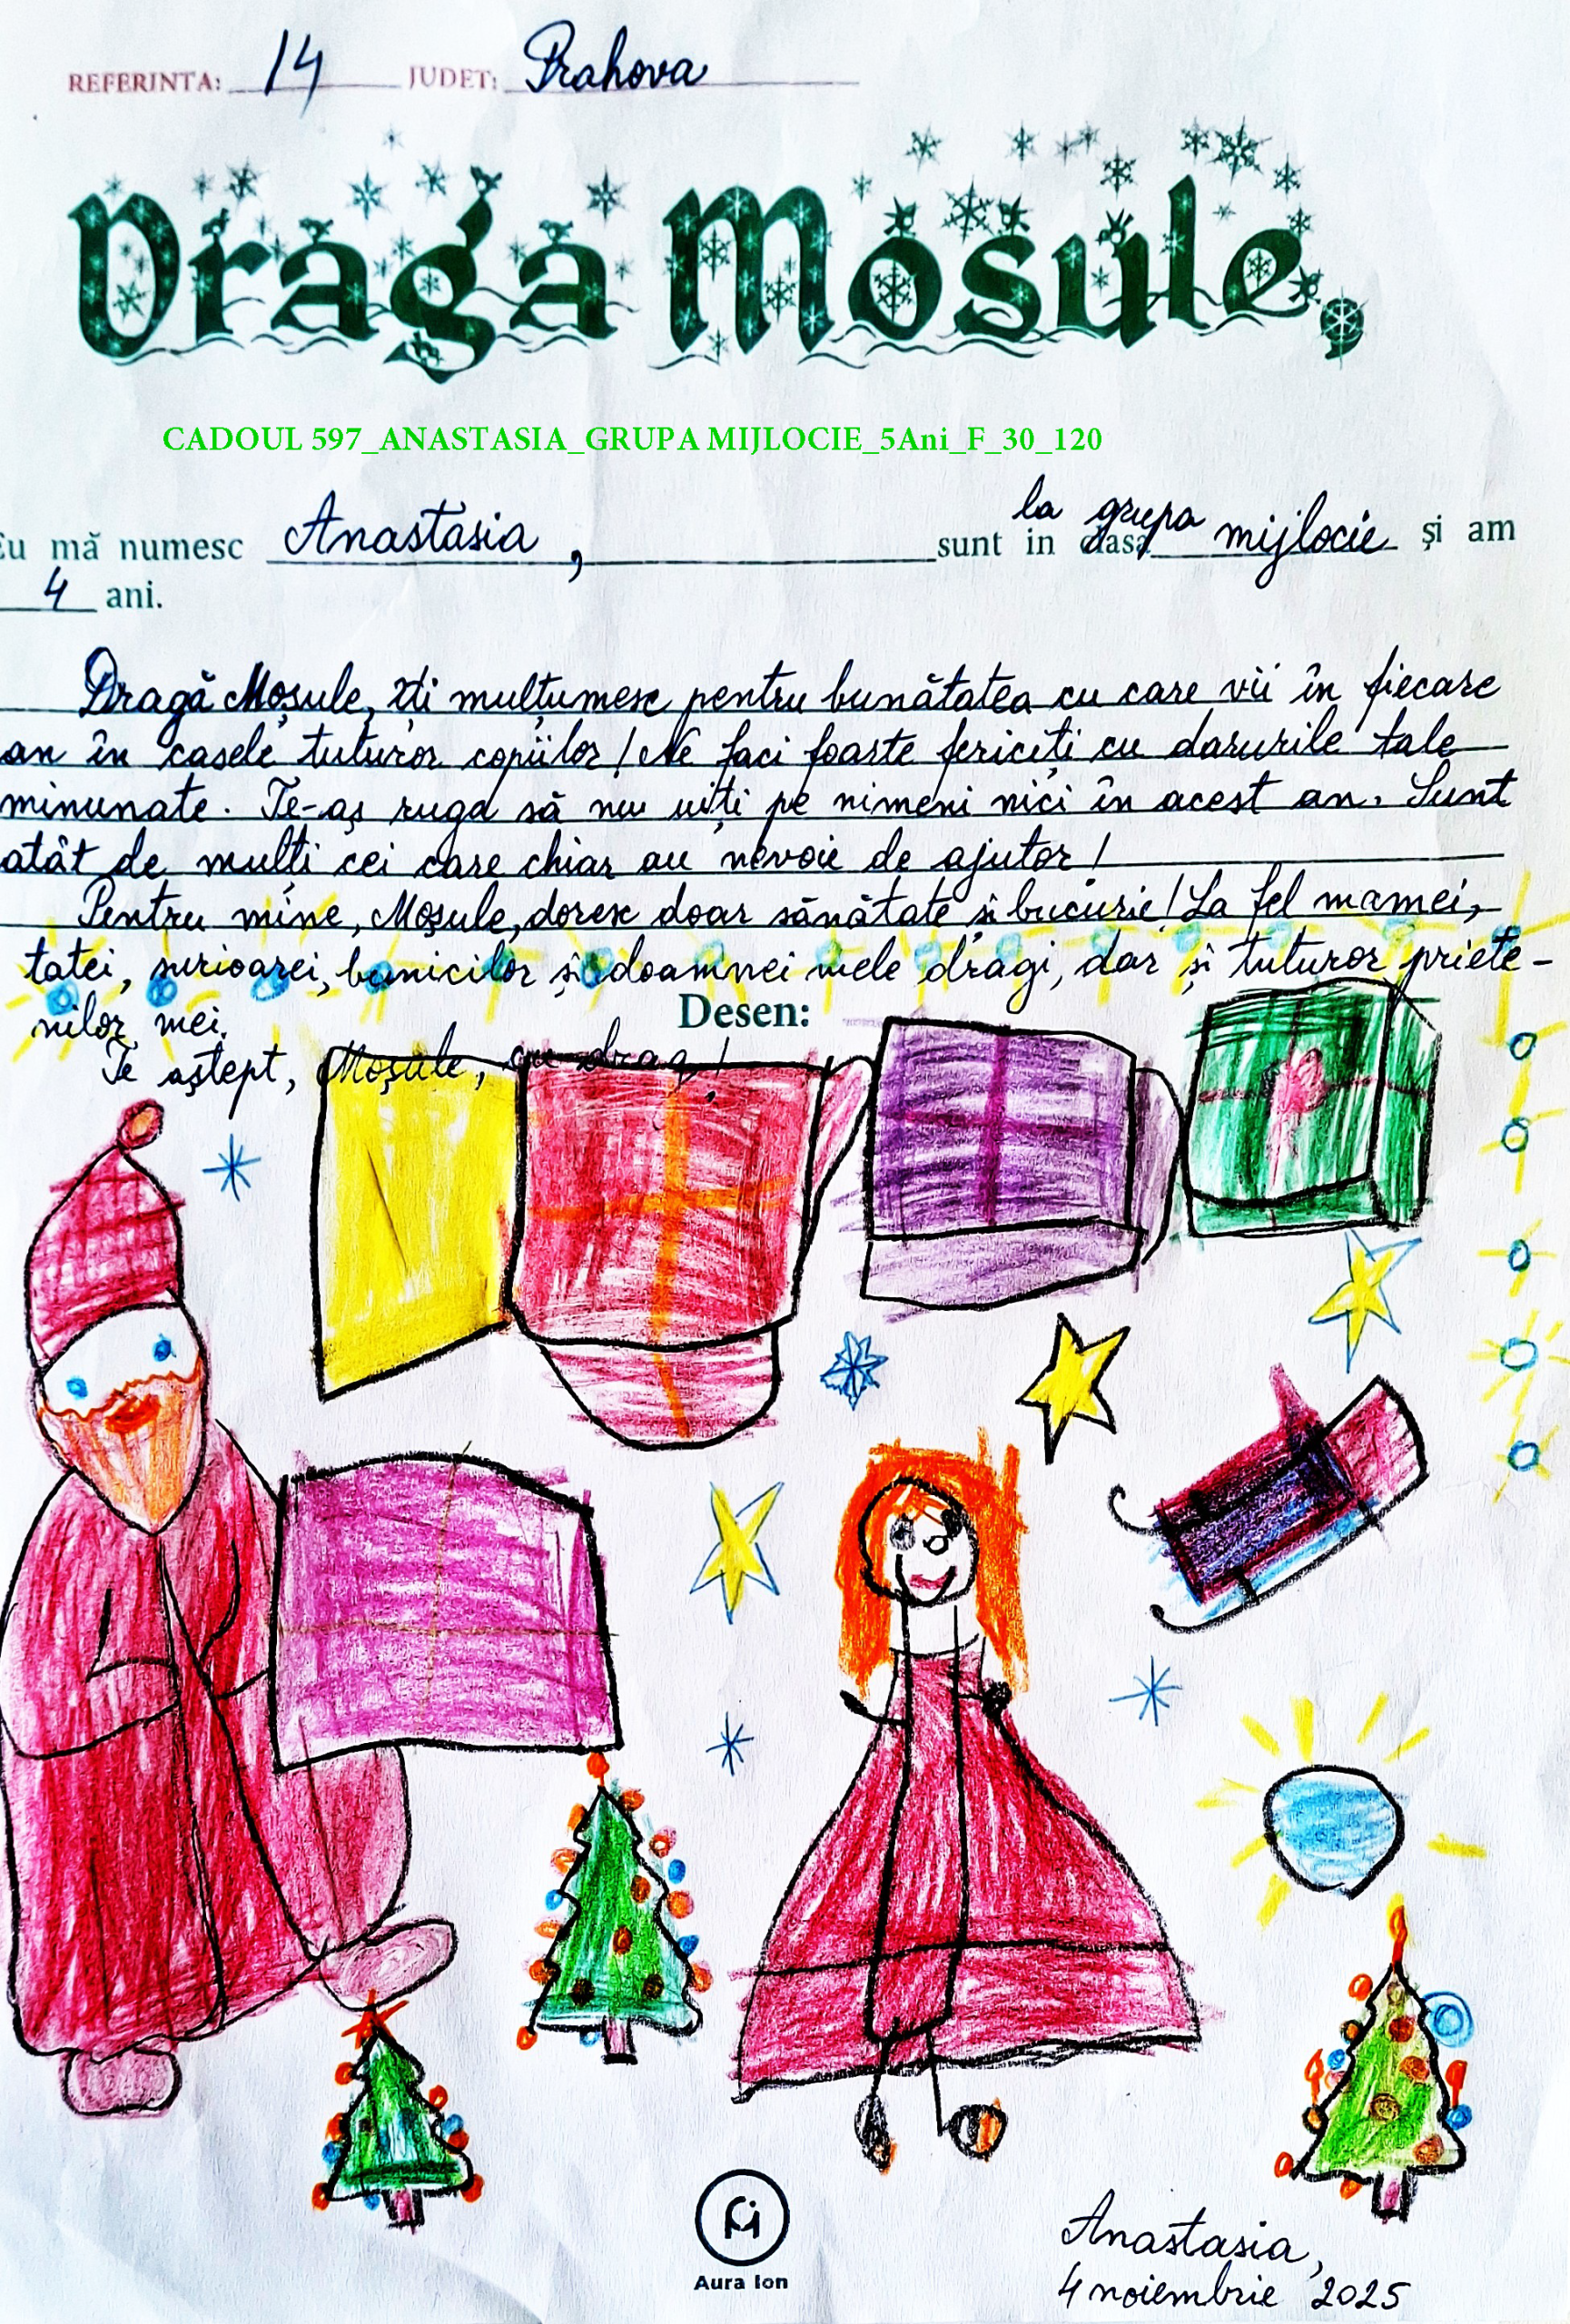 REFERINTA: 14 JUDET: Prahova
Draga Mosule,
CADOUL 597_ANASTASIA_GRUPA MIJLOCIE_5Ani_F_30_120
la grupa
Eu mă numesc Anastasia, sunt in clasa mijlocie și am
4 ani.
Dragă Moșule, îți mulțumesc pentru bunătatea cu care vii în fiecare
an în casele tuturor copiilor! Ne faci foarte fericiți cu darurile tale
minunate. Te-aș ruga să nu uiți pe nimeni nici în acest an. Sunt
atât de mulți cei care chiar au nevoie de ajutor!
Pentru mine, Moșule, doresc doar sănătate și bucurie! La fel mamei,
tatei, surioarei, bunicilor și doamnei mele dragi, dar și tuturor priete-
nilor mei.
Desen:
Te aștept, Moșule, cu drag!
Aura Ion
Anastasia,
4 noiembrie 2025